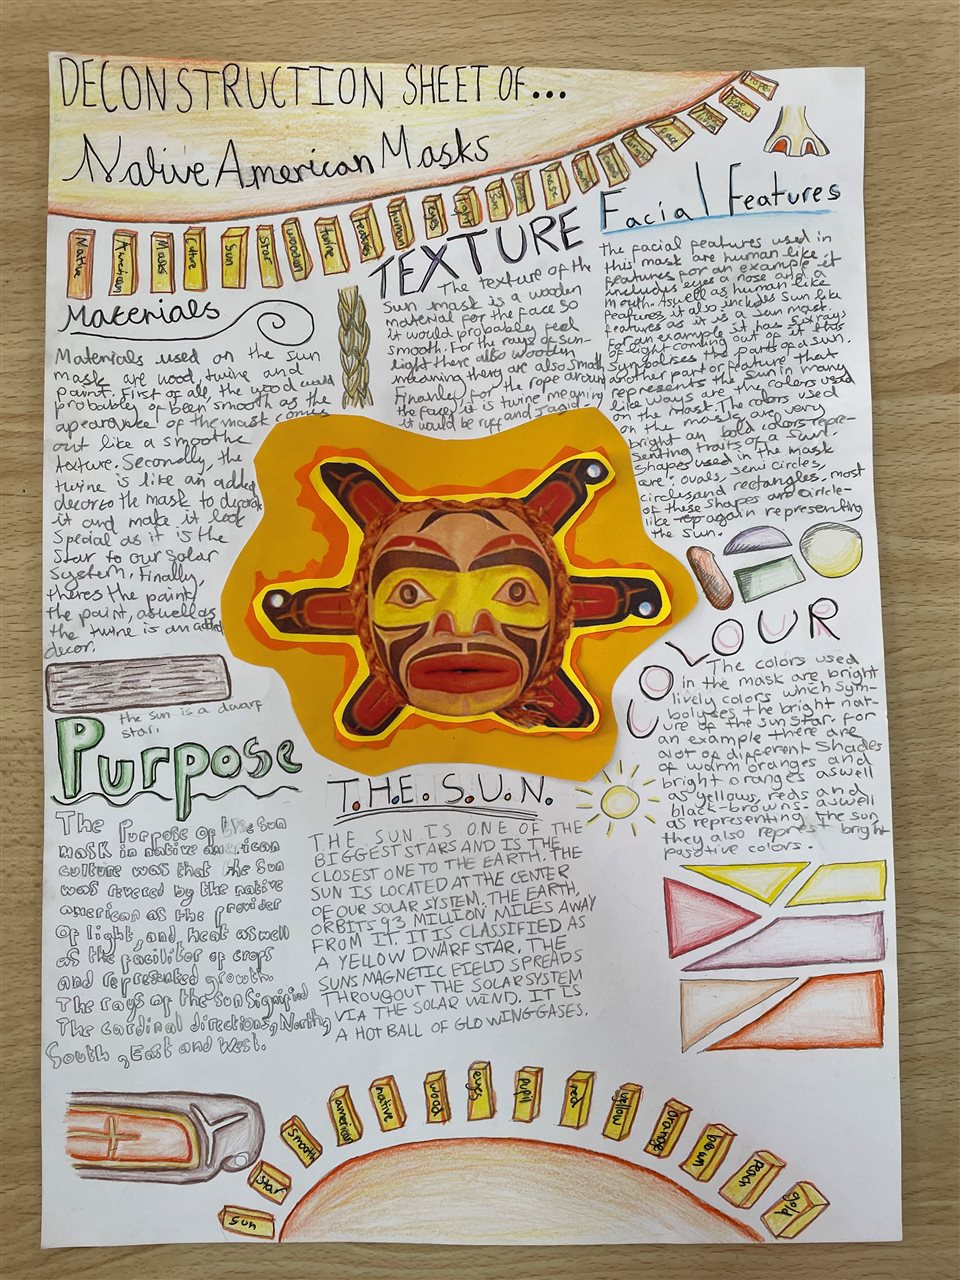 DECONSTRUCTION SHEET OF...
Native American Masks
Native
American
Masks
Culture
Sun
Star
wooden
twine
features
human
eyes
light
Sun
rays
nose
face
rope
Materials
Materials used on the sun
mask are wood, twine and
paint. First of all, the wood would
probably of been smooth as the
apearance of the mask comes
out like a smoothe
texture. Secondly, the
twine is like an added
decor to the mask to decorate
it and make it look
special as it is the
star to our solar
system. Finally,
theres the paint,
the paint, aswell as
the twine is an added
decor.
TEXTURE
The texture of the
Sun mask is a wooden
material for the face so
it would probably feel
smooth. For the rays of sun-
light there also wooden
meaning they are also smooth
Finanley for the rope around
the face, it is twine meaning
it would be ruff and Jagid.
Facial Features
The facial features used in
this mask are human like
features for an example it
includes eyes a nose and a
mouth. Aswell as human like
features it also includes Sun like
features as it is a sun mask.
for an example it has six rays
of light coming out of it this
Symbolises the parts of a sun.
another part or feature that
represents the sun in many
like ways are the colors used
on the mask. The colors used
on the mask are very
bright an bold colors repre-
senting traits of a sun.
Shapes used in the mask
are: ovals, semi circles,
circles and rectangles, most
of these shapes are circle-
like again representing
the sun.
COLOUR
The colors used
in the mask are bright
lively colors which sym-
bolyses the bright nat-
ure of the sun star. for
an example there are
alot of different shades
of warm oranges and
bright oranges aswell
as yellows, reds and
black-browns- aswell
as representing the sun
they also represent bright
positive colors.
the sun is a dwarf
star.
Purpose
The Purpose of the Sun
mask in native american
culture was that the Sun
was revered by the native
american as the provider
of light, and, heat aswell
as the facilitor of crops
and represented growth.
The rays of the sun signified
The cardinal directions, North,
South, East and West.
T.H.E. S.U.N.
THE SUN IS ONE OF THE
BIGGEST STARS AND IS THE
CLOSEST ONE TO THE EARTH. THE
SUN IS LOCATED AT THE CENTER
OF OUR SOLAR SYSTEM. THE EARTH,
ORBITS 93 MILLION MILES AWAY
FROM IT. IT IS CLASSIFIED AS
A YELLOW DWARF STAR. THE
SUNS MAGNETIC FIELD SPREADS
THROUGOUT THE SOLAR SYSTEM
VIA THE SOLAR WIND. IT IS
A HOT BALL OF GLOWING GASES.
Sun
star
smooth
american
native
wood
eyes
pupil
red
yellow
orange
brown
peach
gold